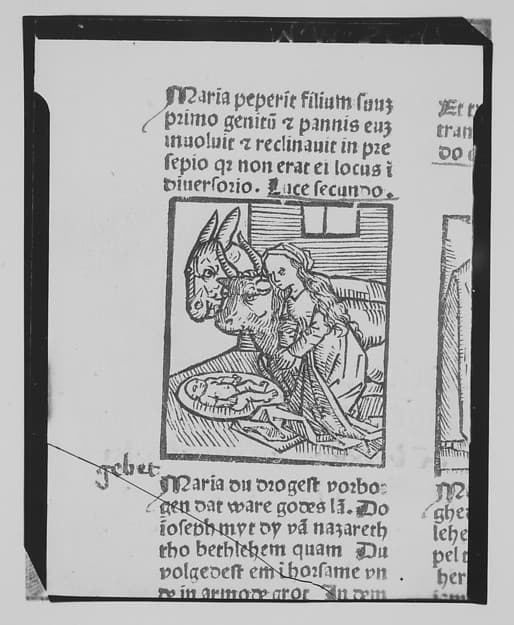 Maria peperit filium suuʒ
primo genitū ⁊ pannis euʒ
inuoluit ⁊ reclinauit in pre
sepio qꝛ non erat ei locus ī
diuersorio. Luce secundo.
gebet
Maria du drogest vorbo⸗
gen dat ware godes lā. Do
ioseph myt dy vā nazareth
tho bethlehem quam Du
volgedest em ī horsame vn
de in armode grot In dem
Et
tran
do
ghe
lehe
pel t
her